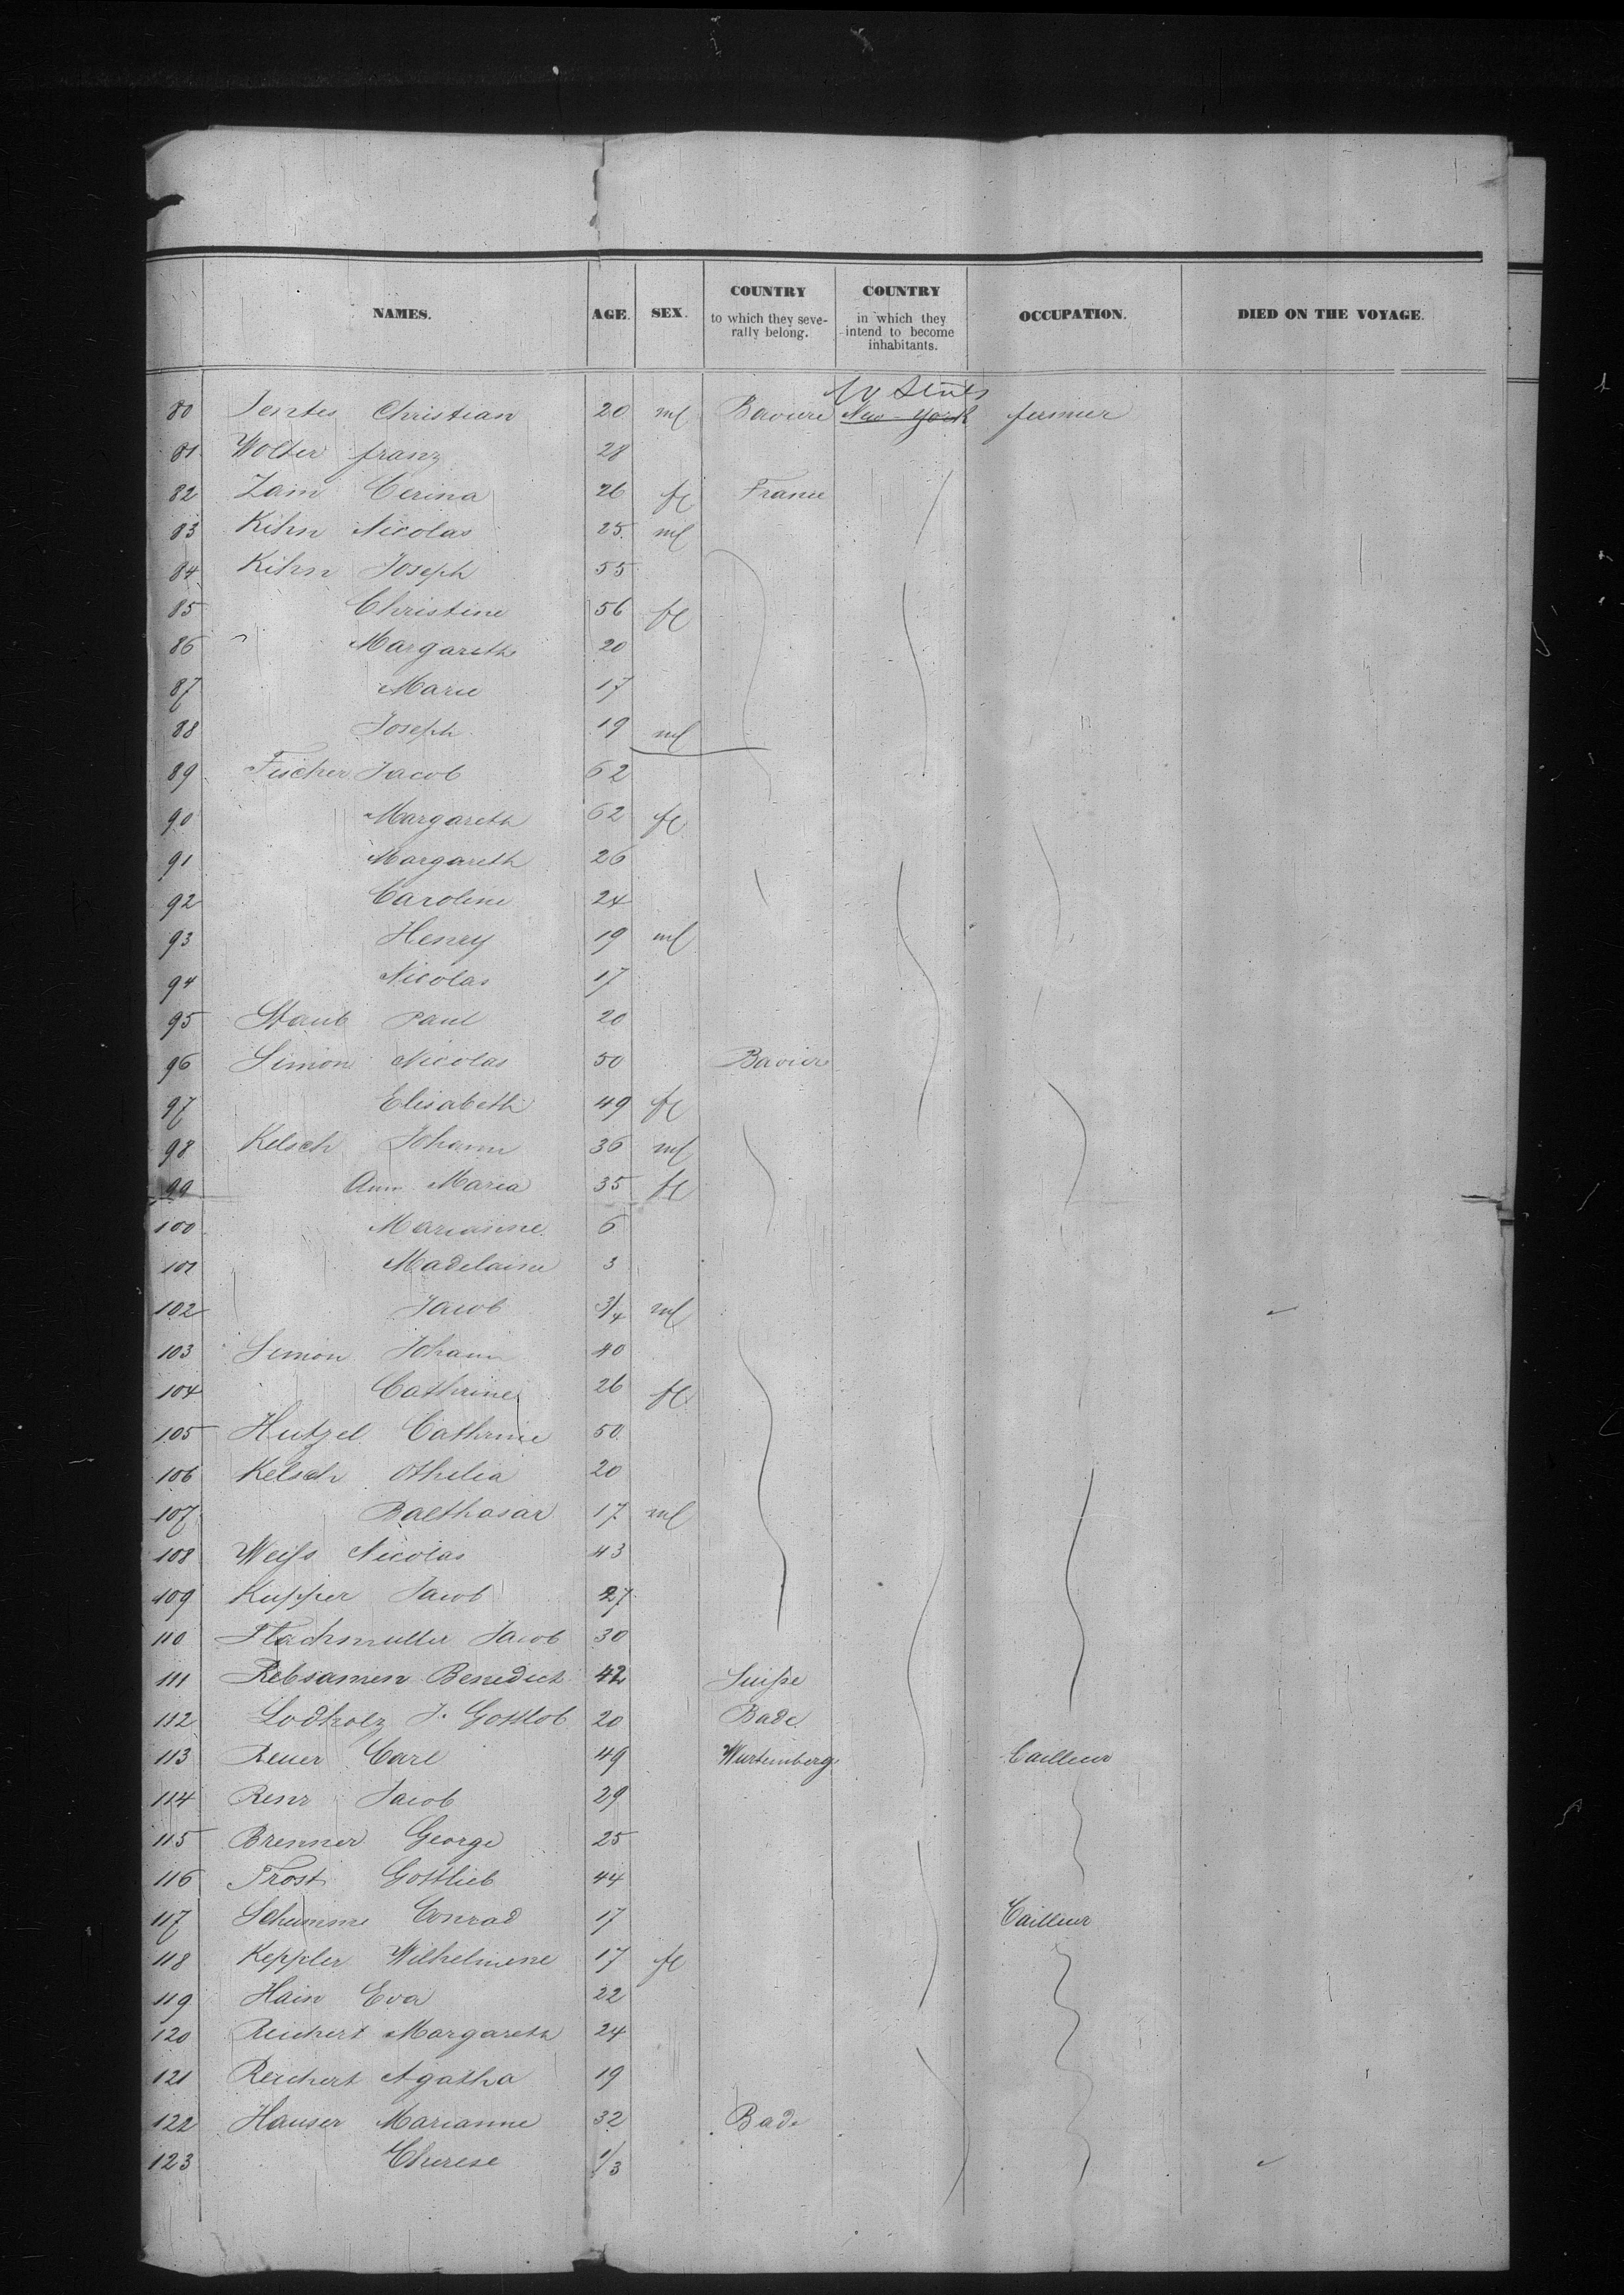 NAMES. AGE. SEX. COUNTRY to which they severally belong. COUNTRY in which they intend to become inhabitants. OCCUPATION. DIED ON THE VOYAGE.
80 Christian 20 ml Baviere New-York
81 Wolter franz 28
82 Zain Cerina 26 fl France
83 Kihn Nicolas 25 ml
84 Kihn Joseph 55
85 Christine 56 fl
86 Margareth 20
87 Marie 17
88 Joseph 19 ml
89 Fischer Jacob 62
90 Margareth 62 fl
91 Margareth 26
92 Caroline 24
93 Henry 19 ml
94 Nicolas 17
95 Staub Paul 20
96 Simon Nicolas 50 Bavier
97 Elisabeth 49 fl
98 Kelsch Johann 36 ml
99 Ann Maria 35 fl
100 Marianne 6
101 Madelaine 3
102 Jacob 3/4 ml
103 Simon Johann 40
104 Cathrine 26 fl
105 Hutzel Cathrine 50
106 Kelsch Othelia 20
107 Balthasar 17 ml
108 Weiss Nicolas 43
109 Kupper Jacob 27
110 Flachmuller Jacob 30
111 Rebsamen Benedict 42 Suisse
112 Lodholz J. Gottlob 20 Bade
113 Reuer Carl 49 Wurtemberg Tailleur
114 Renz Jacob 29
115 Brenner George 25
116 Trost Gottlieb 44
117 Schumme Conrad 17 Tailleur
118 Keppler Wilhelmine 17 fl
119 Hain Eva 22
120 Reichert Margareth 24
121 Reichert Agatha 19
122 Hauser Marianne 32 Bade
123 Therese 1/3